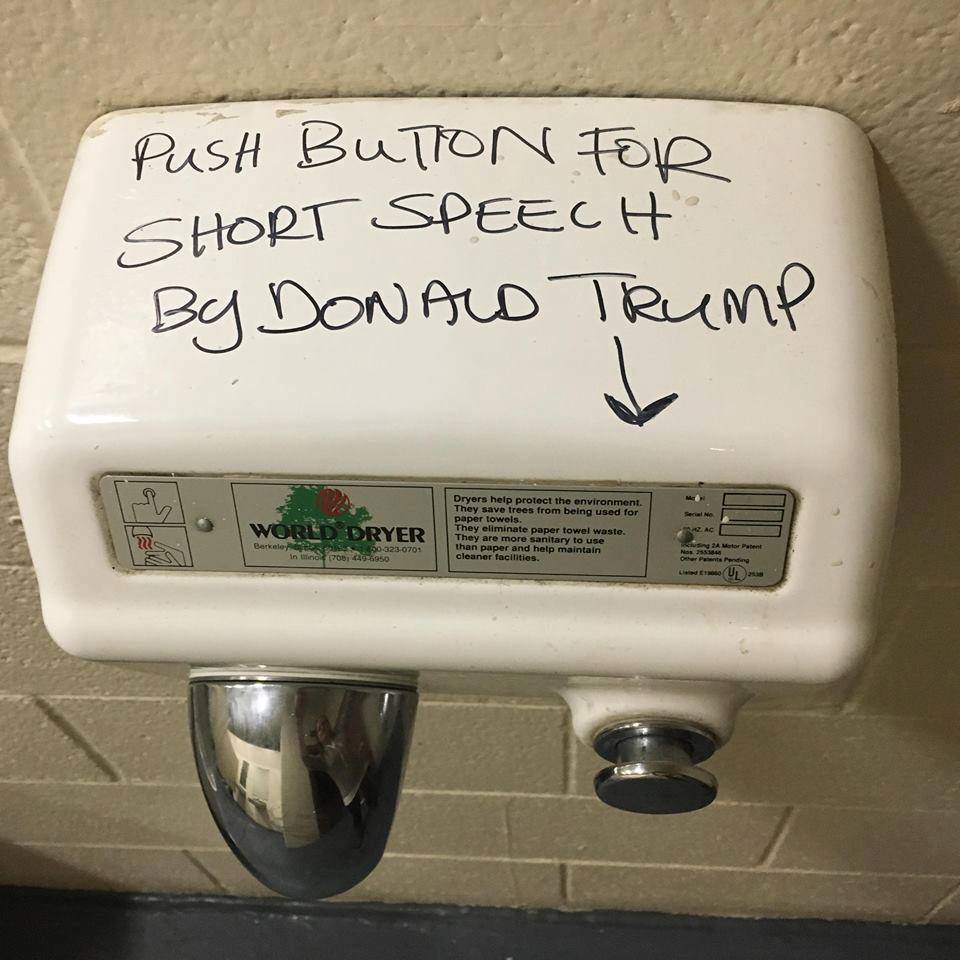 PUSH BUTTON FOR
SHORT SPEECH
BY DONALD TRUMP
WORLD® DRYER
Berkeley
00-323-0701
In Illinois (708) 449-6950
Dryers help protect the environment.
They save trees from being used for
paper towels.
They eliminate paper towel waste.
They are more sanitary to use
than paper and help maintain
cleaner facilities.
Serial No.
HZ. AC
Including 2A Motor Patent
Nos. 2553846
Other Patents Pending
Listed E19860 UL 253B